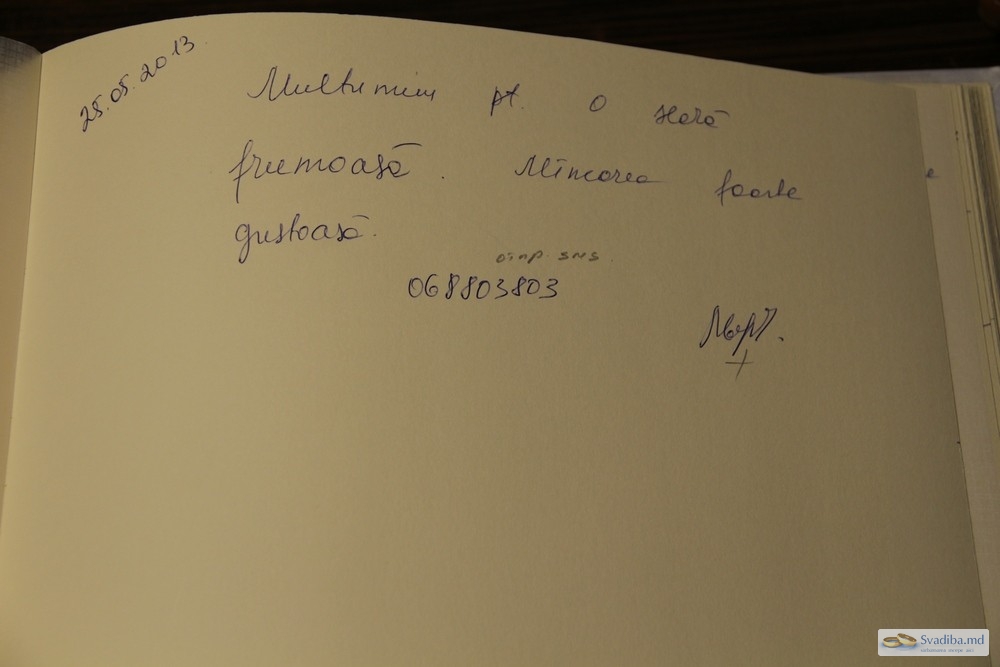 25.05.2013
Multumim pt. o seară
frumoasă. Mîncarea foarte
gustoasă.
отпр. SMS.
068803803
Svadiba.md